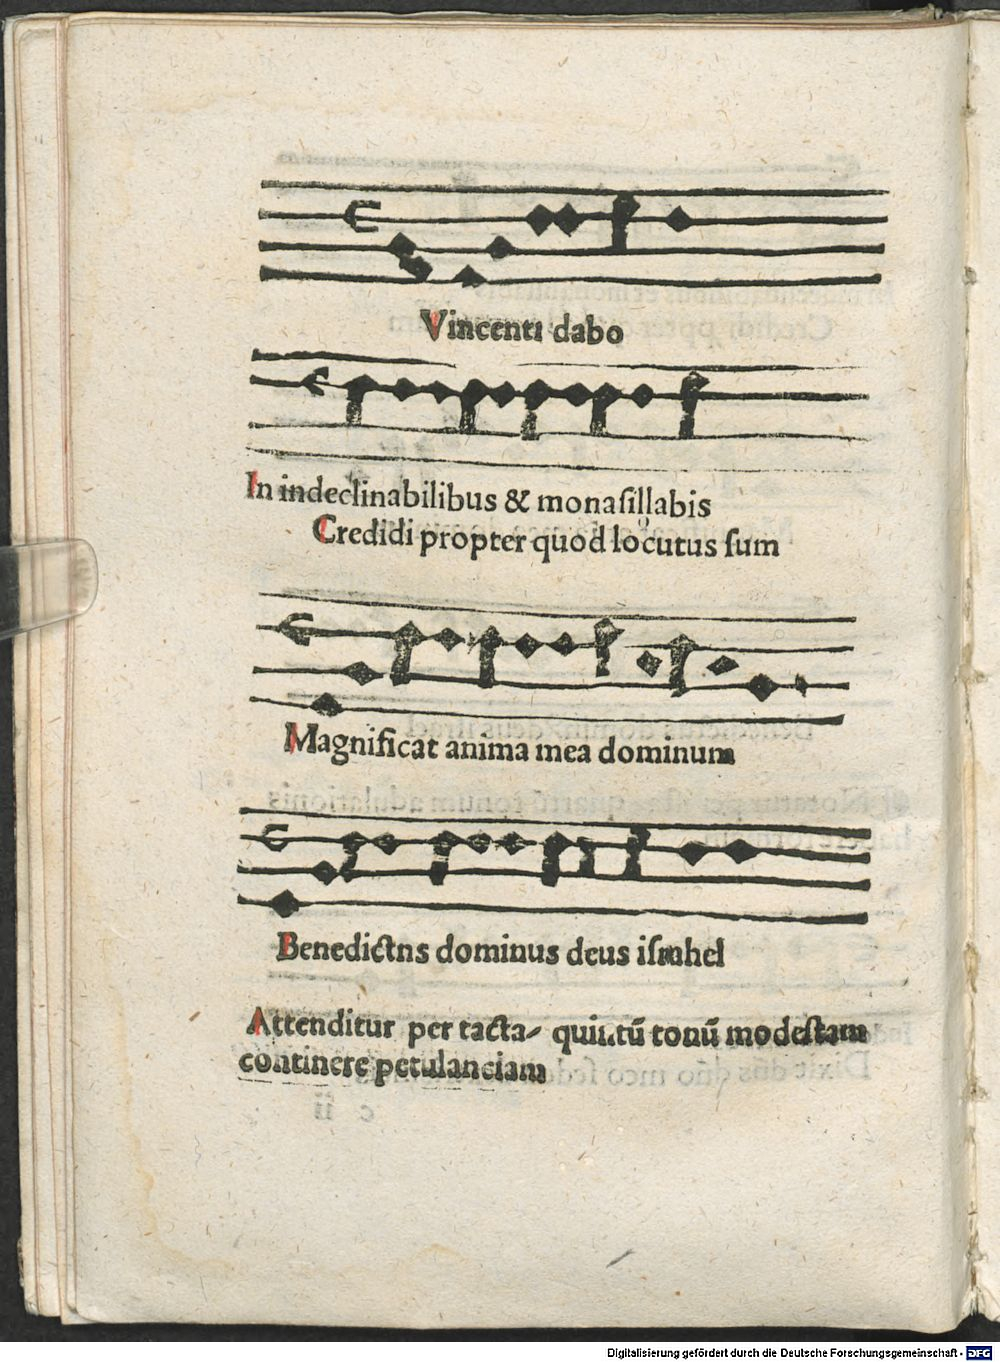 Vincenti dabo
In indeclinabilibus & monasillabis
Credidi propter quod locutus sum
Magnificat anima mea dominum
Benedictns dominus deus israhel
Attenditur per tacta quintū tonū modestam
continere petulanciam
Digitalisierung gefördert durch die Deutsche Forschungsgemeinschaft - DFG